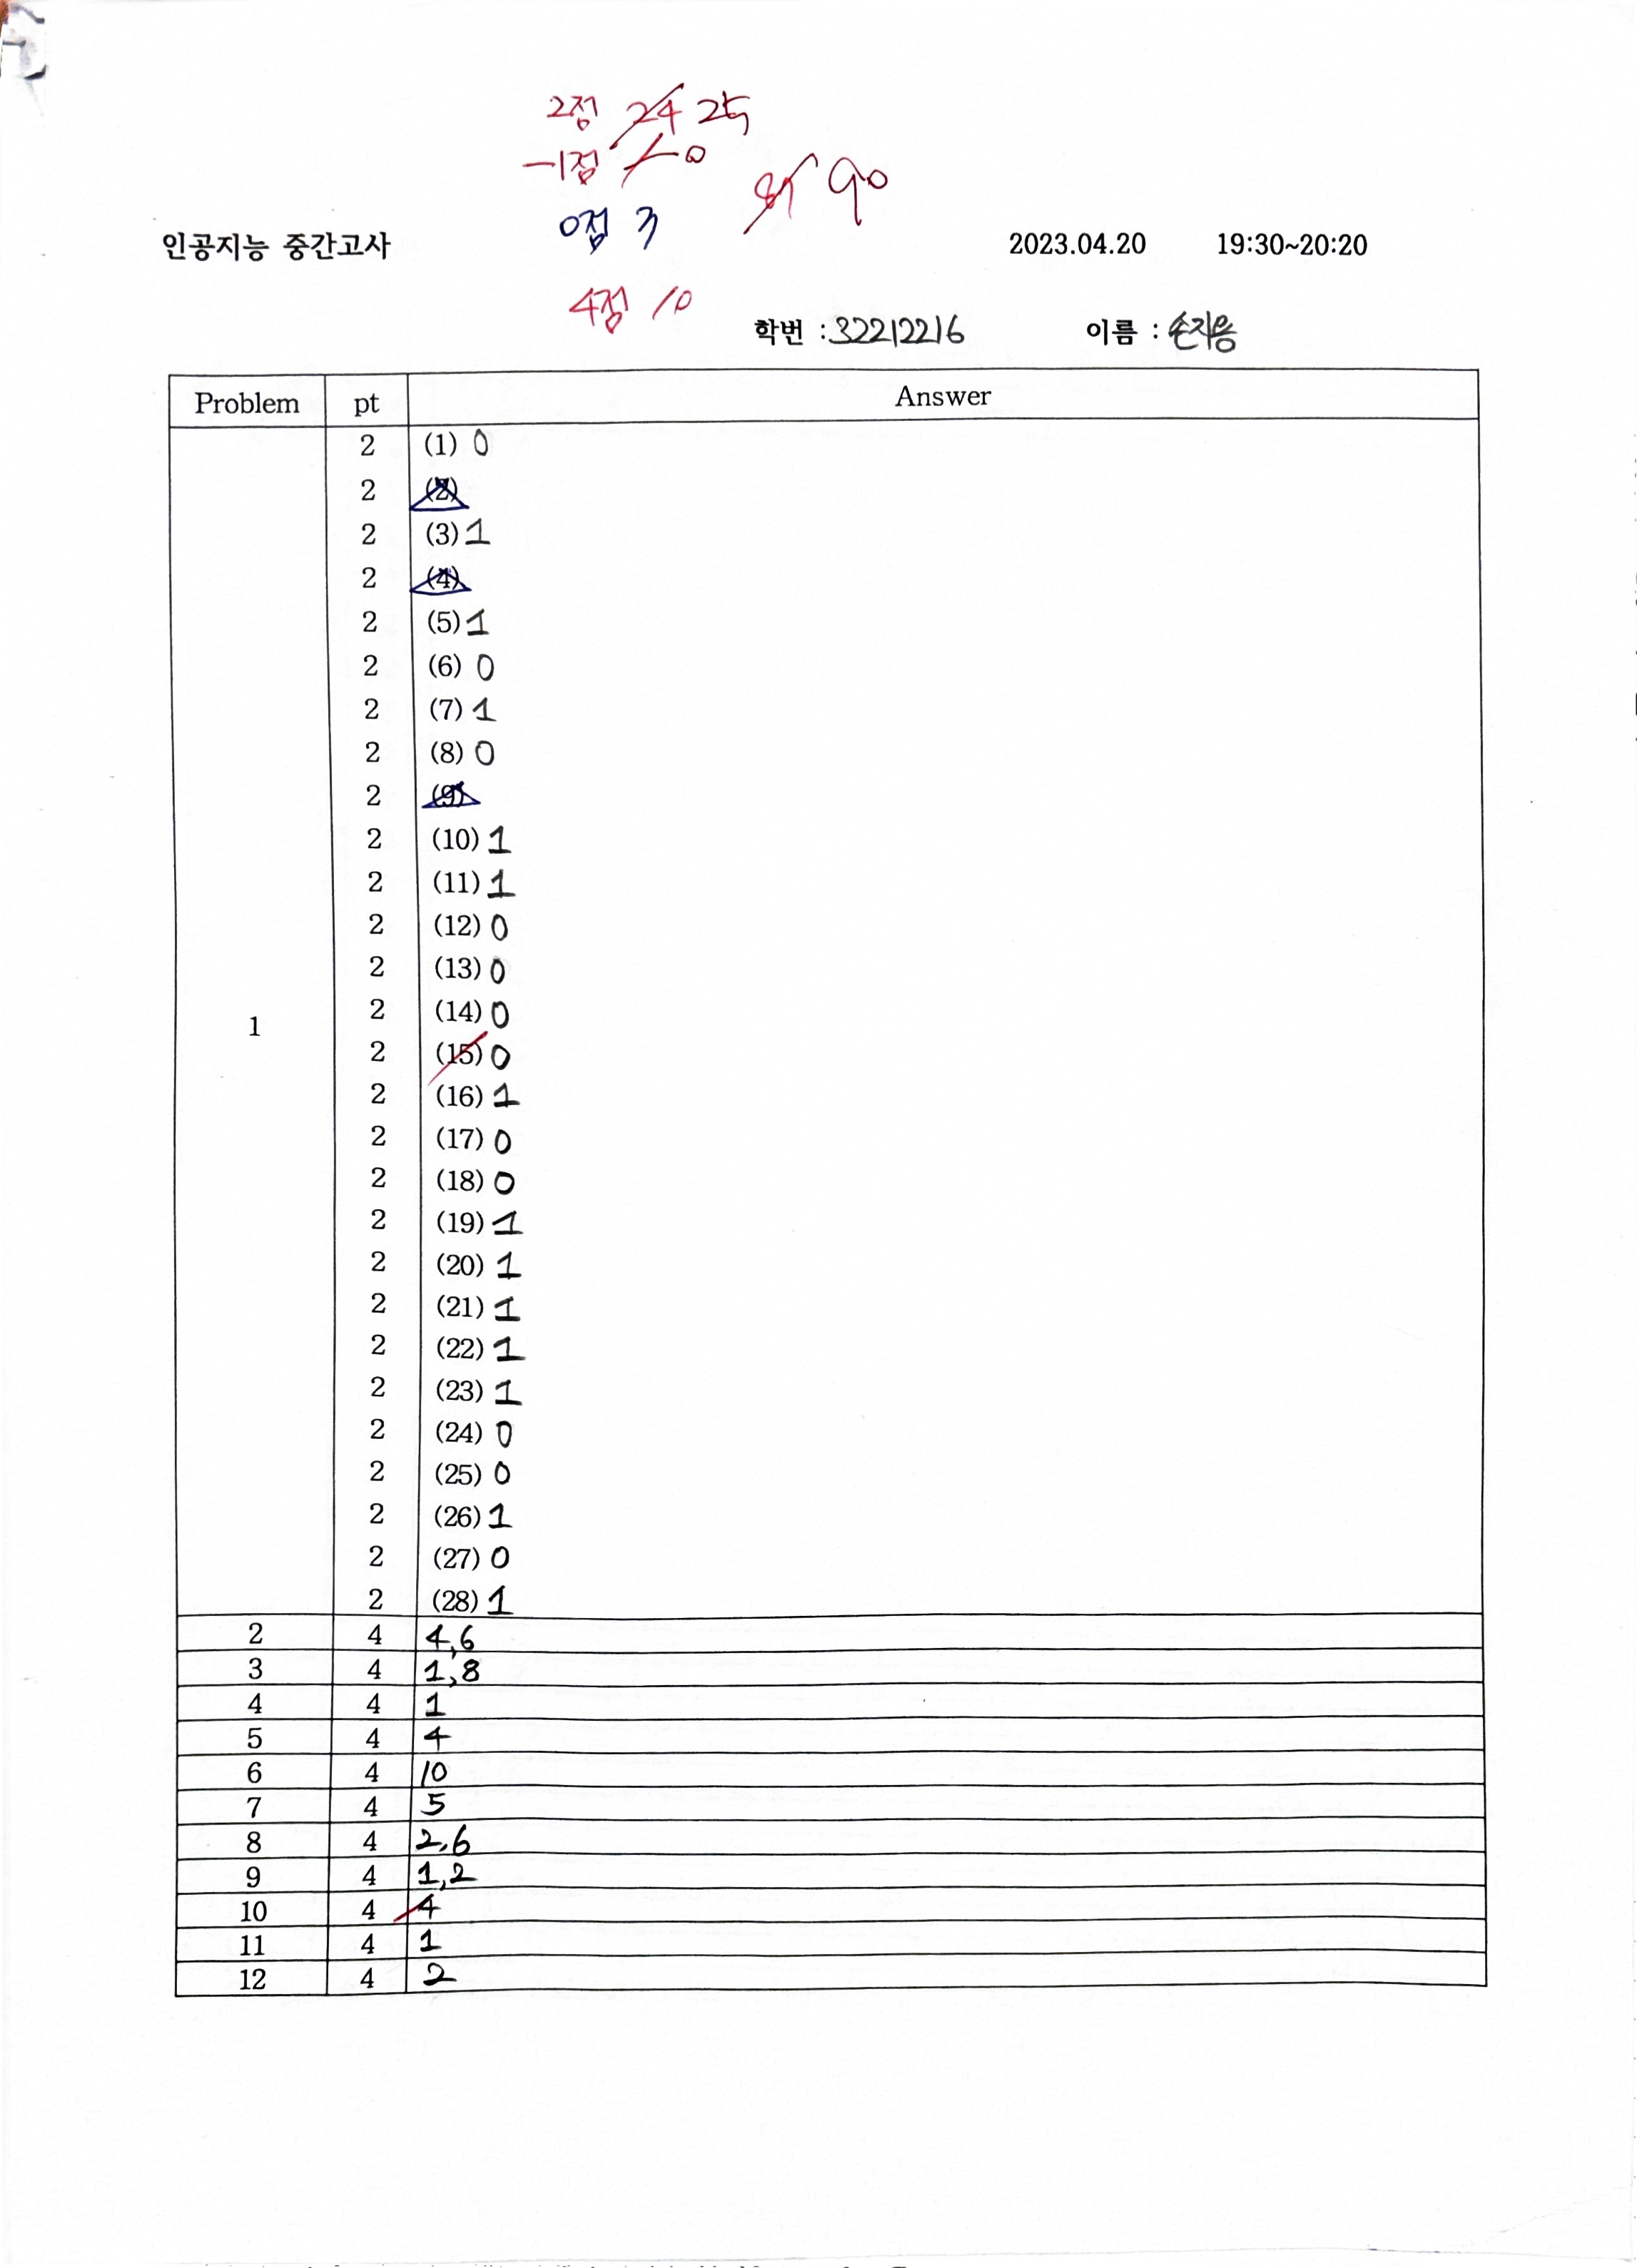 2점 24 25
-1점 1 0
87 90
0점 3
인공지능 중간고사 2023.04.20 19:30~20:20
4점 10
학번 : 32212216 이름 : 손지용
Problem pt Answer
2 (1) 0
2 (2)
2 (3) 1
2 (4)
2 (5) 1
2 (6) 0
2 (7) 1
2 (8) 0
2 (9)
2 (10) 1
2 (11) 1
2 (12) 0
2 (13) 0
2 (14) 0
1
2 (15) 0
2 (16) 1
2 (17) 0
2 (18) 0
2 (19) 1
2 (20) 1
2 (21) 1
2 (22) 1
2 (23) 1
2 (24) 0
2 (25) 0
2 (26) 1
2 (27) 0
2 (28) 1
2 4 4,6
3 4 1,8
4 4 1
5 4 4
6 4 10
7 4 5
8 4 2,6
9 4 1,2
10 4 4
11 4 1
12 4 2